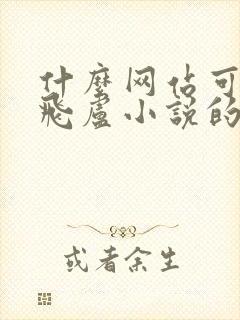 什麼网佔可
飛盧小說的
或者余生